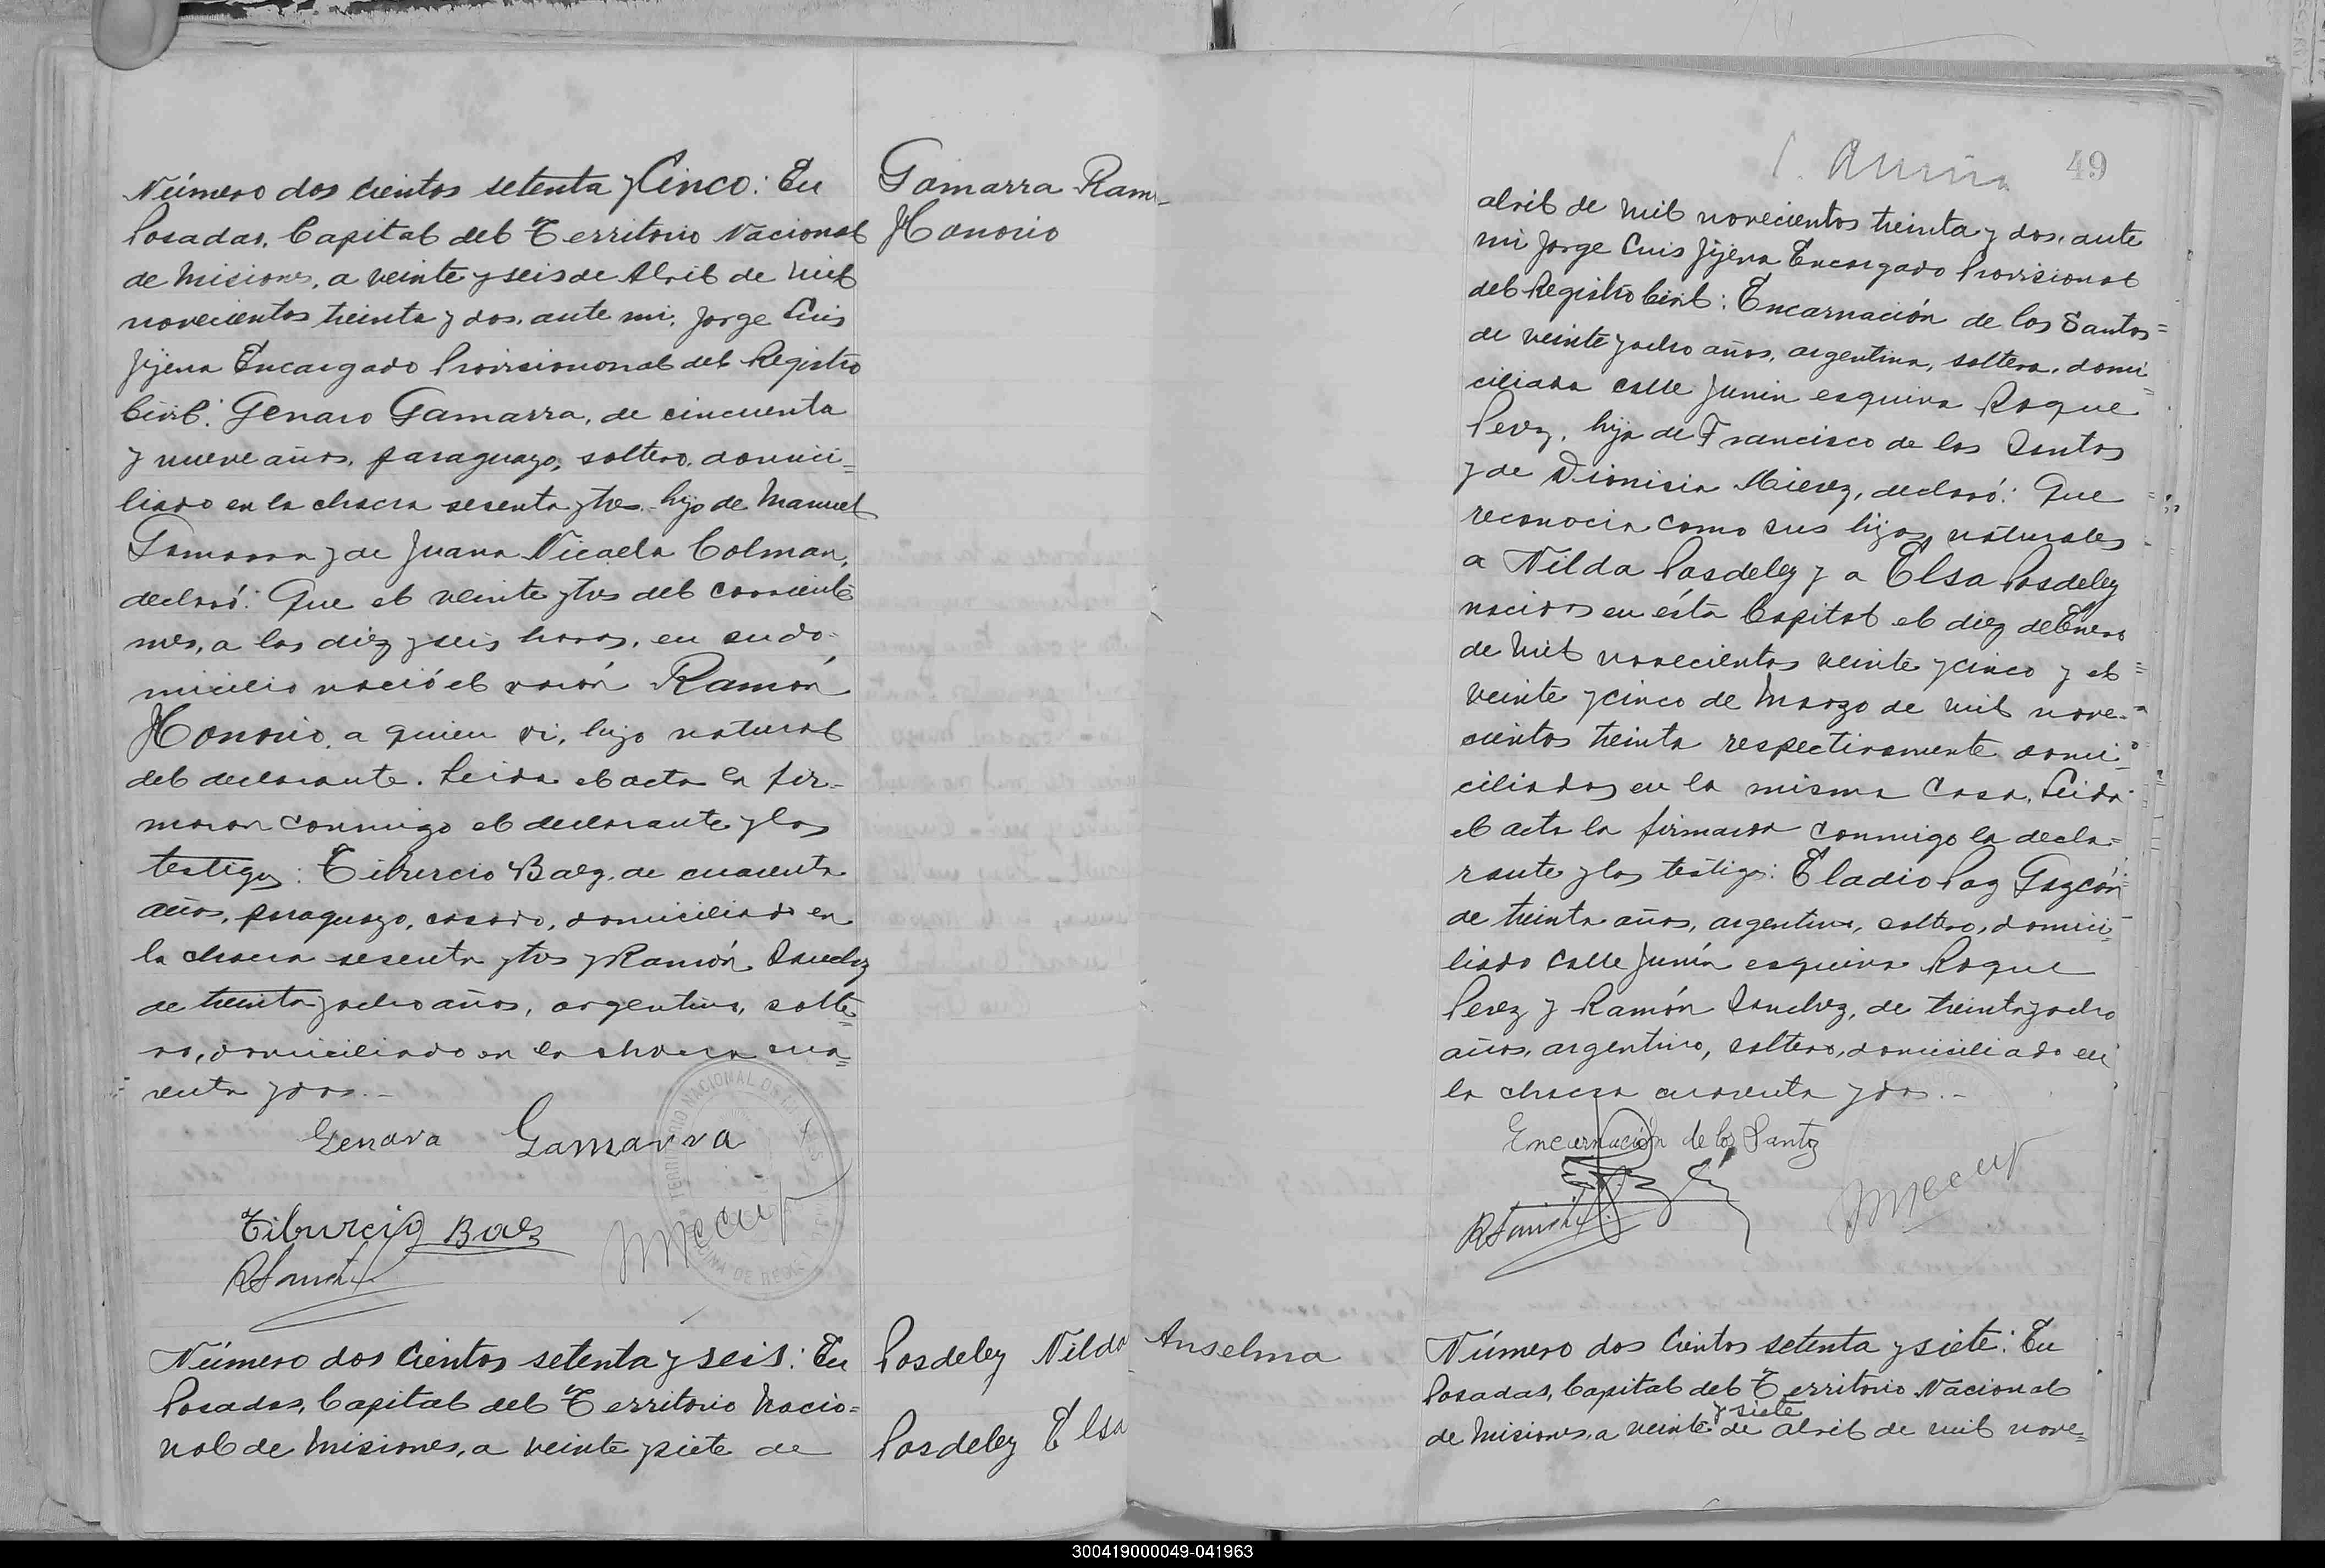 Número dos cientos setenta y Cinco: En
Posadas, Capital del Territorio Nacional
de Misiones, a veinte y seis de Abril de mil
novecientos treinta y dos, ante mi, Jorge Luis
Jijena Encargado Provisiononal del Registro
Civil: Genaro Gamarra, de cincuenta
y nueve años, paraguayo, soltero, domici=
liado en la chacra sesenta y tres hijo de Manuel
Gamarra y de Juana Nicaela Colman,
declaró: Que el veinte y tres del corriente
mes, a las diez y seis horas, en su do-
micilio nació el varón Ramón
Honorio, a quien vi, hijo natural
del declarante. Leida el acta la fir-
maron conmigo el declarante y los
testigos: Tiburcio Baez, de cuarenta
años, paraguayo, casado, domiciliado en
la chacra sesenta y tres y Ramón Sanchez
de treinta y ocho años, argentino, solte=
ro, domiciliado en la chacra cua=
renta y dos.-
Genaro Gamarra
Tiburcio Baez
Gamarra Ram
Honorio
Número dos cientos setenta y seis: En
Posadas, Capital del Territorio Nacio=
nal de Misiones, a veinte y siete de
Posdeley Nilda Anselma
Posdeley Elsa
49
abril de mil novecientos treinta y dos, ante
mi Jorge Luis Jijena Encargado Provisional
del Registro Civil: Encarnación de los Santos=
de veinte y ocho años, argentina, soltera, domi=
ciliada calle Junin esquina Roque
Perez, hija de Francisco de los Santos
y de Dionisia Mierez, declaró: Que
reconocia como sus hijas naturales
a Nilda Posdeley y a Elsa Posdeley
nacidas en ésta Capital el diez de Enero
de mil novecientos veinte y cinco y el
veinte y cinco de Marzo de mil nove-
cientos treinta respectivamente domi=
ciliadas en la misma casa. Leida
el acta la firmaron conmigo la decla=
rante y los testigos: Eladio Paz Gazcón
de treinta años, argentino, soltero, domici=
liado calle Junín esquina Roque
Perez y Ramón Sanchez, de treinta y ocho
años, argentino, soltero, domiciliado en
la chacra cuarenta y dos.-
Encarnación de los Santos
Número dos cientos setenta y siete: En
Posadas, Capital del Territorio Nacional
y siete
de Misiones, a veinte de abril de mil nove=
300419000049-041963